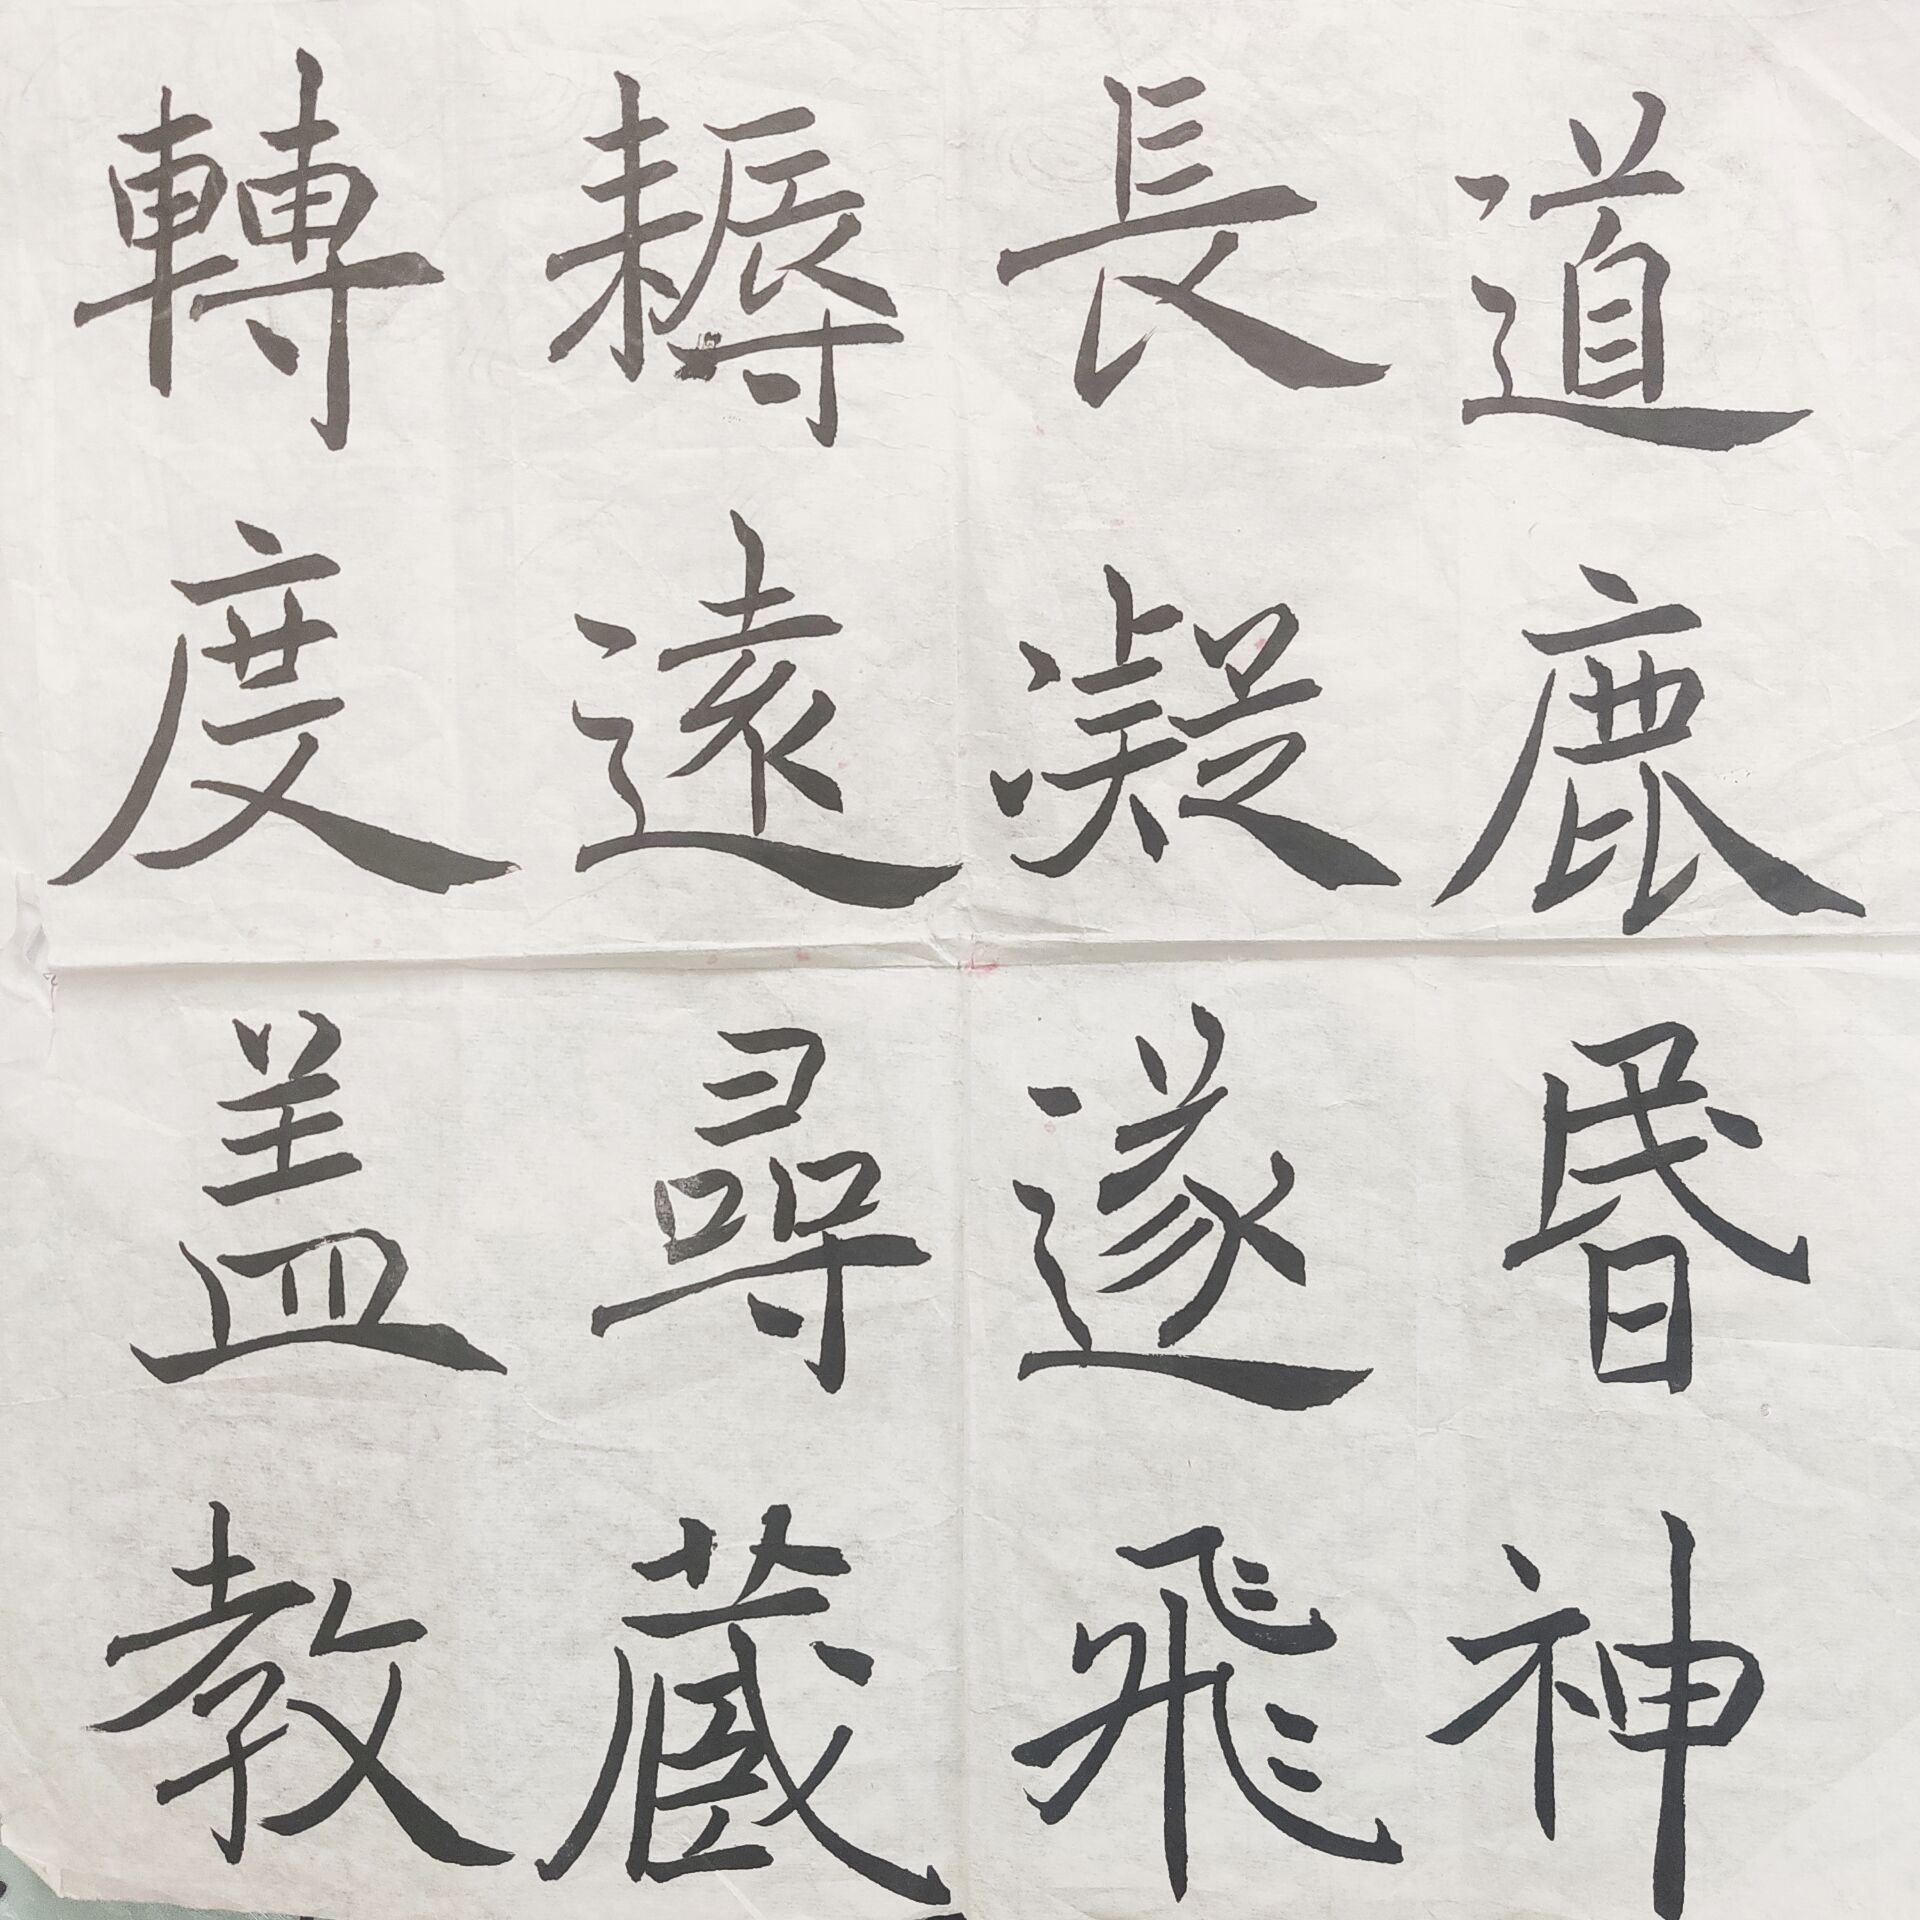 道鹿昬神
長凝遂飛
耨遠尋蔵
轉度盖教